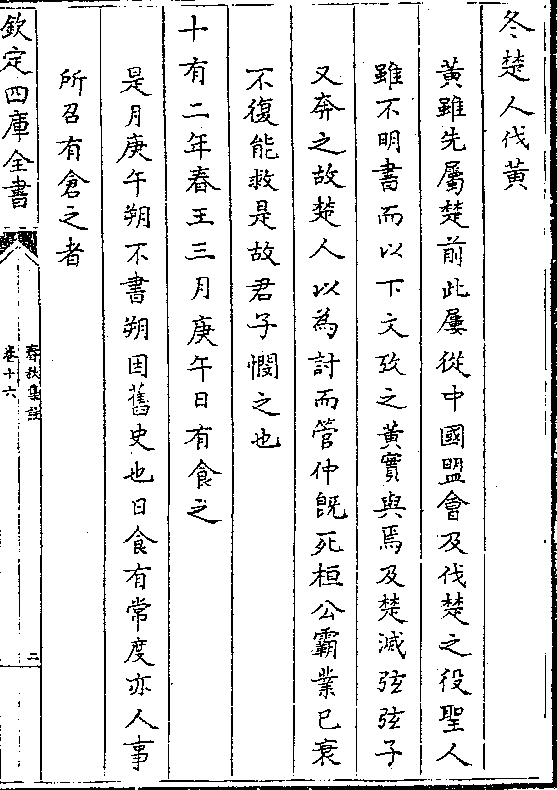 冬楚人伐黃
黃雖先屬楚前此屢從中國盟會及伐楚之役聖人
雖不明書而以下文攷之黃實與焉及楚滅弦弦子
又奔之故楚人以為討而管仲既死桓公霸業已衰
不復能救是故君子憫之也
十有二年春王三月庚午日有食之
是月庚午朔不書朔因舊史也日食有常度亦人事
所召有倉之者
欽定四庫全書
春秋集註
卷十六
二